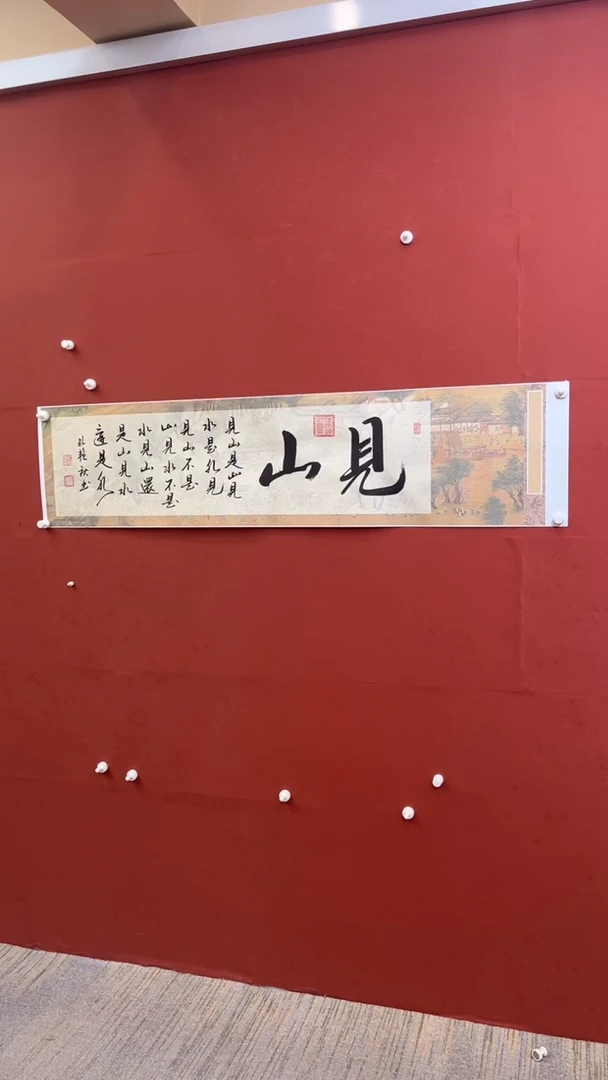 見山
見山是山見
水是水見
見山不是
山見水不是
水見山還
是山見水
還是水